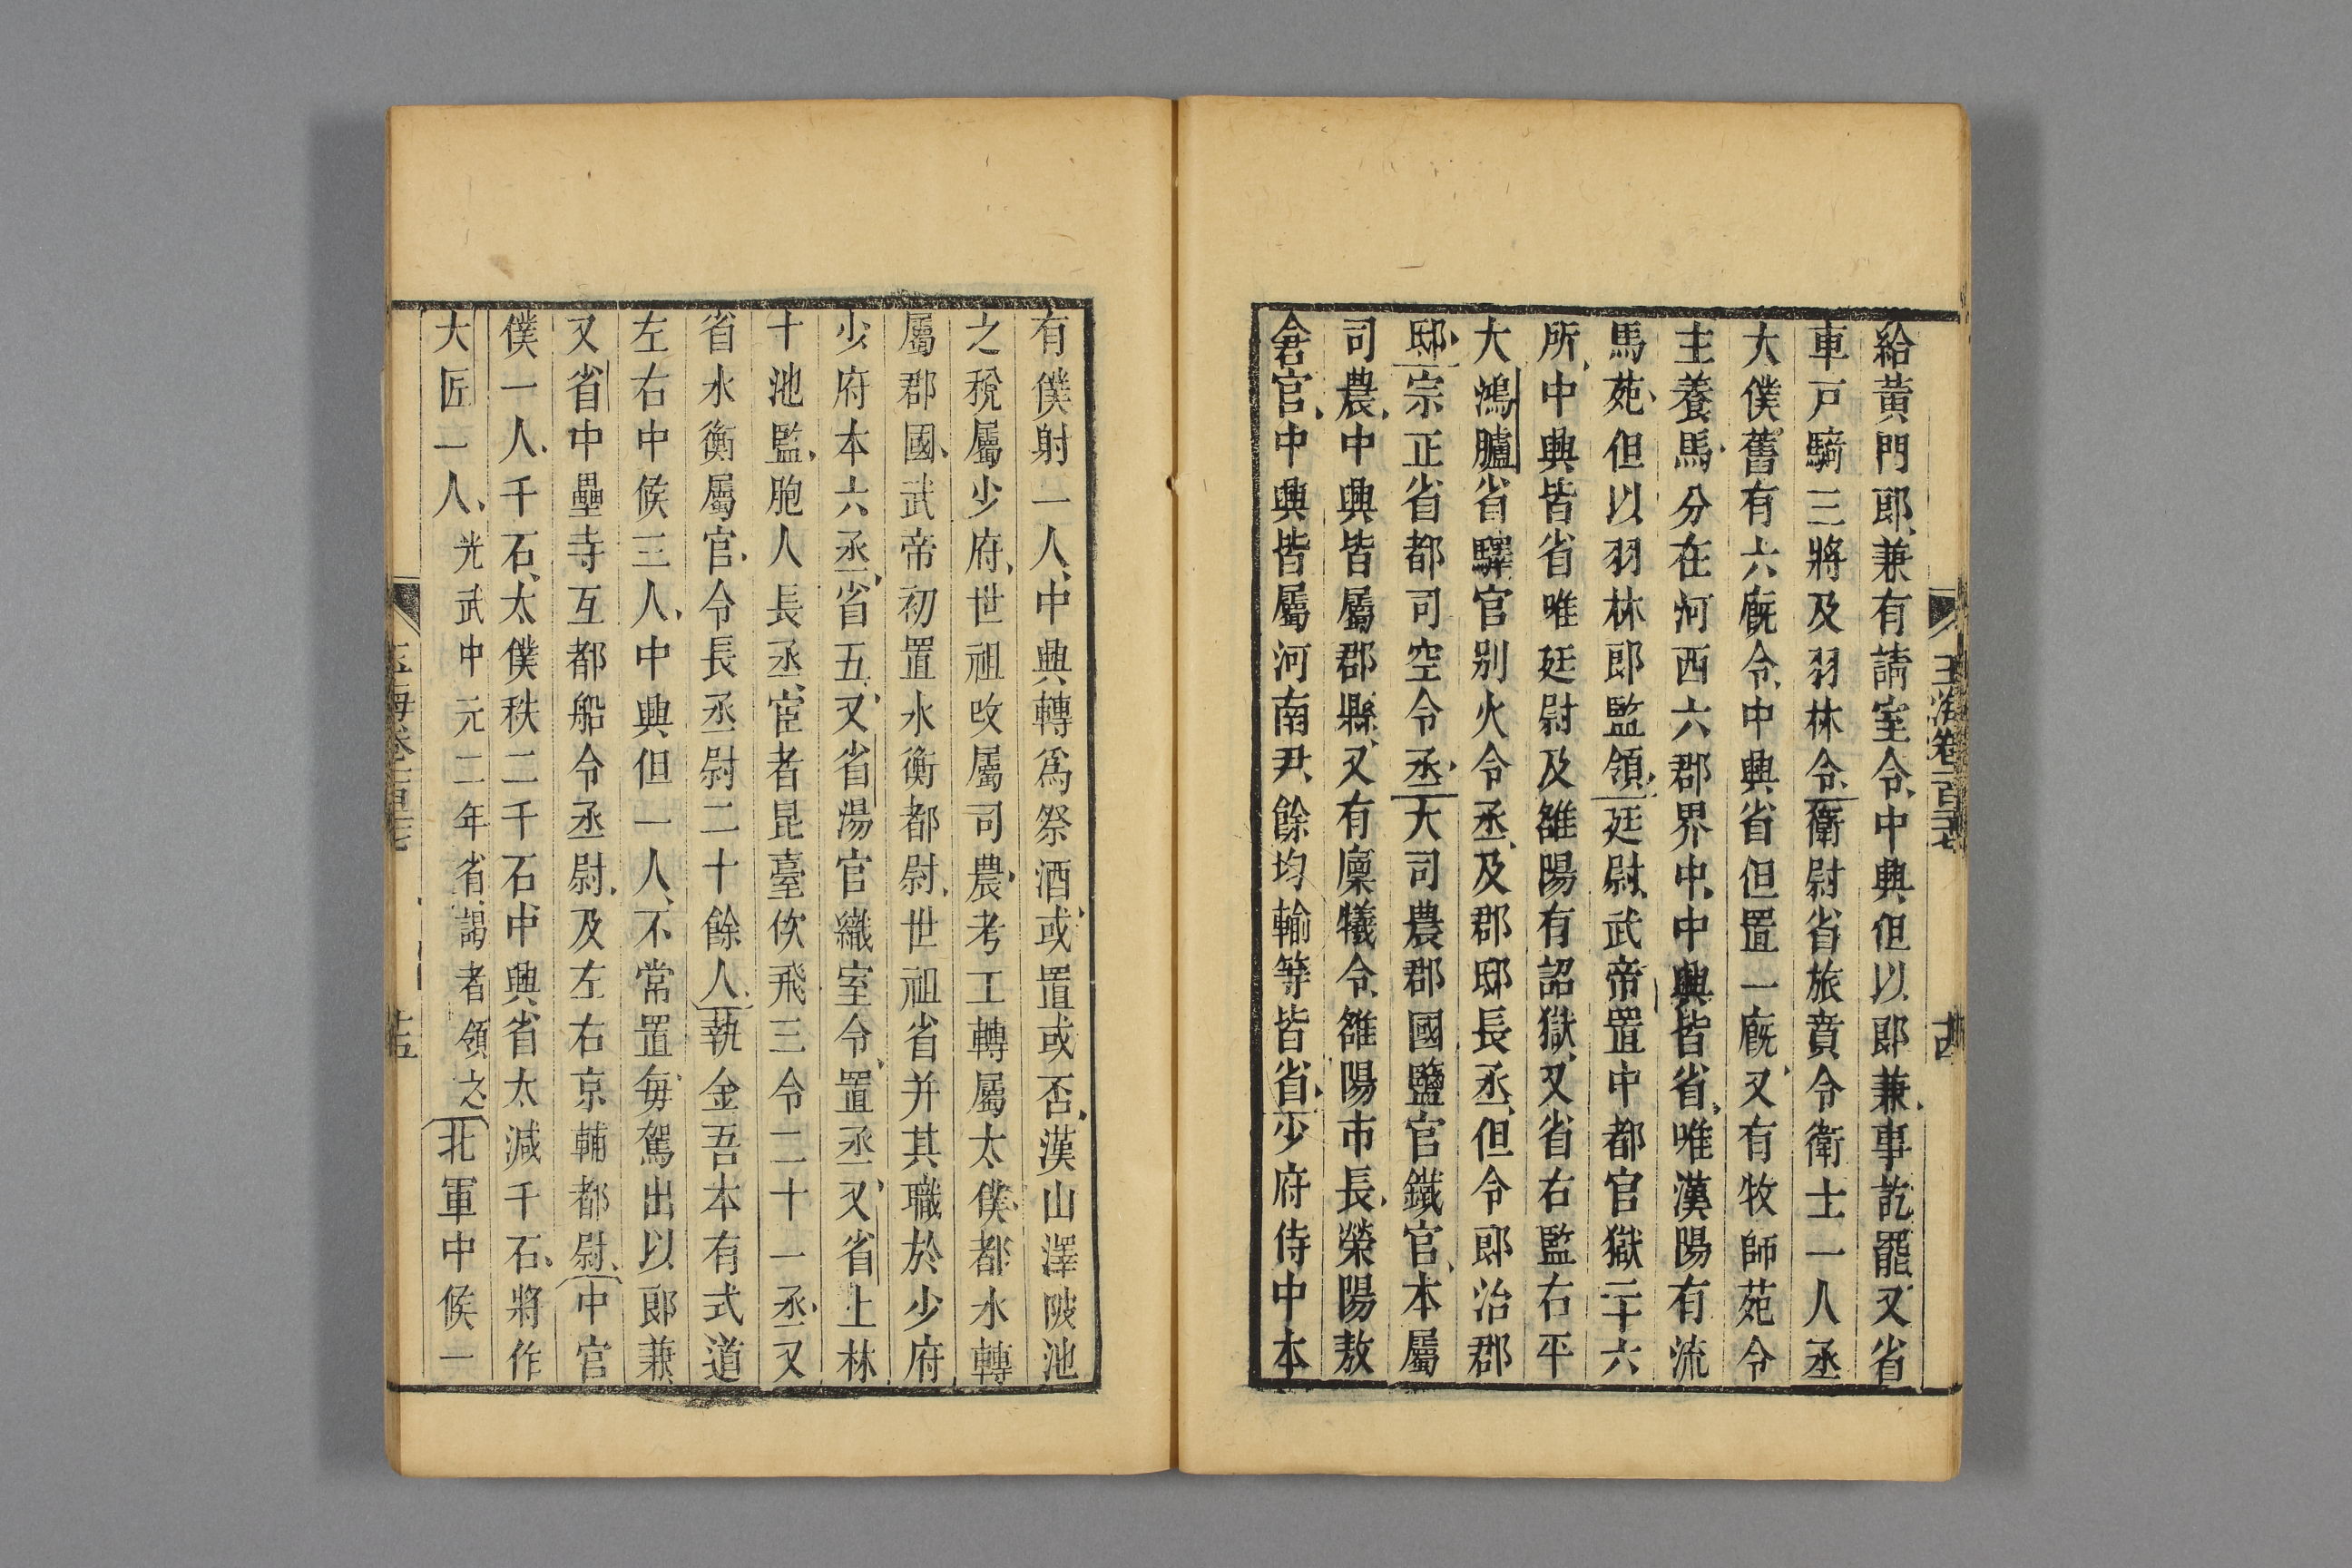 玉海卷一百三七
古
給黃門郎兼有請室令中興但以郎兼事訖罷又省
車戸騎三將及羽林令衛尉省旅賁令衛士一人丞
大僕舊有六廐令中興省但置一廐又有牧師苑令
主養馬分在河西六郡界中中興皆省唯漢陽有流
馬苑但以羽林郎監領廷尉武帝置中都官獄二十六
所中興皆省唯廷尉及雒陽有詔獄又省右監右平
大鴻臚省驛官别火令丞及郡邸長丞但令郎治郡
邸宗正省都司空令丞大司農郡國鹽官鐵官本屬
司農中興皆屬郡縣又有廩犧令雒陽市長滎陽敖
倉官中興皆屬河南尹餘均輸等皆省少府侍中本
有僕射一人中興轉爲祭酒或置或否漢山澤陂池
之稅屬少府世祖攺屬司農考工轉屬太僕都水轉
屬郡國武帝初置水衡都尉世祖省并其職於少府
少府本六丞省五又省湯官織室令置丞又省上林
十池監胞人長丞宦者昆臺佽飛三令二十一丞又
省水衡屬官令長丞尉二十餘人執金吾本有式道
左右中候三人中興但一人不常置每駕出以郎兼
又省中壘寺互都船令丞尉及左右京輔都尉中宮
僕一人千石太僕秩二千石中興省太減千石將作
大匠一人光武中元二年省謁者領之北軍中候一